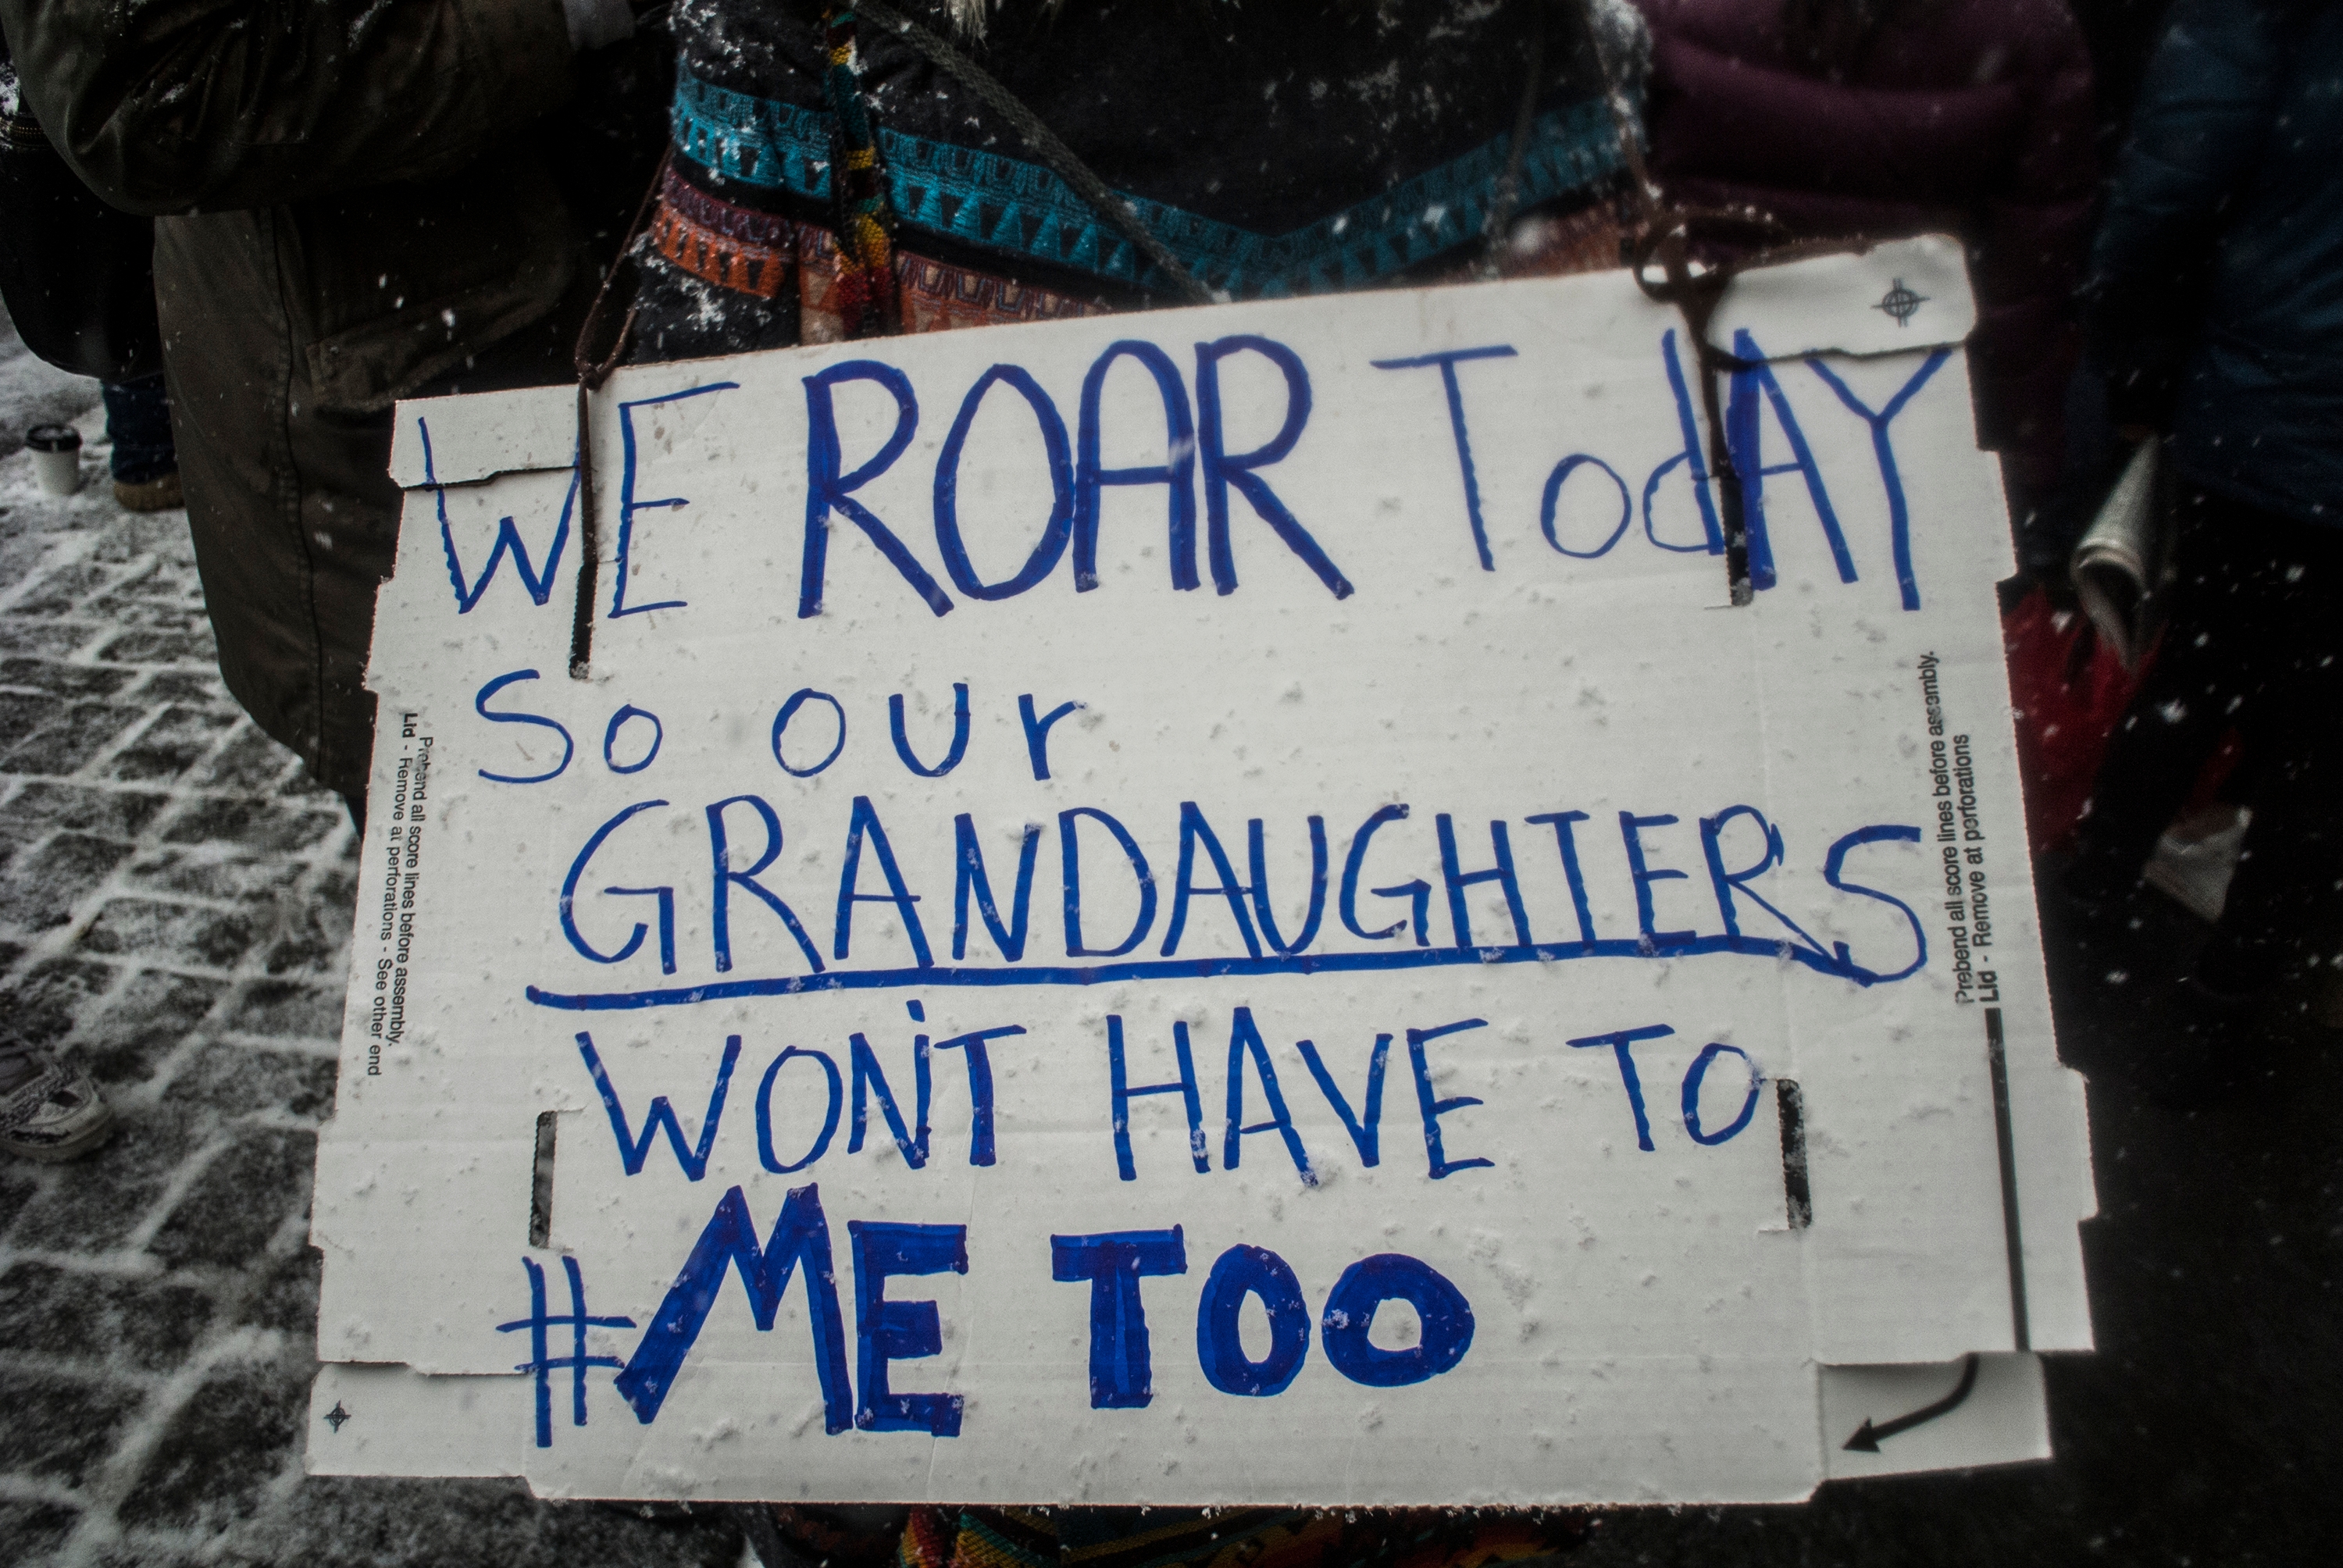 WE ROAR TodAY
So our
GRANDAUGHTERS
WON'T HAVE TO
#ME TOO
Prebend all score lines before assembly.
Lid - Remove at perforations - See other end
Prebend all score lines before assembly.
Lid - Remove at perforations